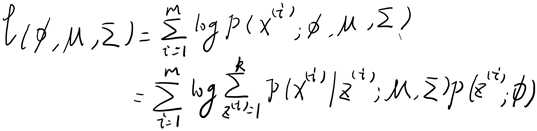 ℓ(ϕ,μ,Σ) = ∑_{i=1}^{m} log p(x^{(i)};ϕ,μ,Σ)
= ∑_{i=1}^{m} log ∑_{z^{(i)}=1}^{k} p(x^{(i)}|z^{(i)};μ,Σ)p(z^{(i)};ϕ)